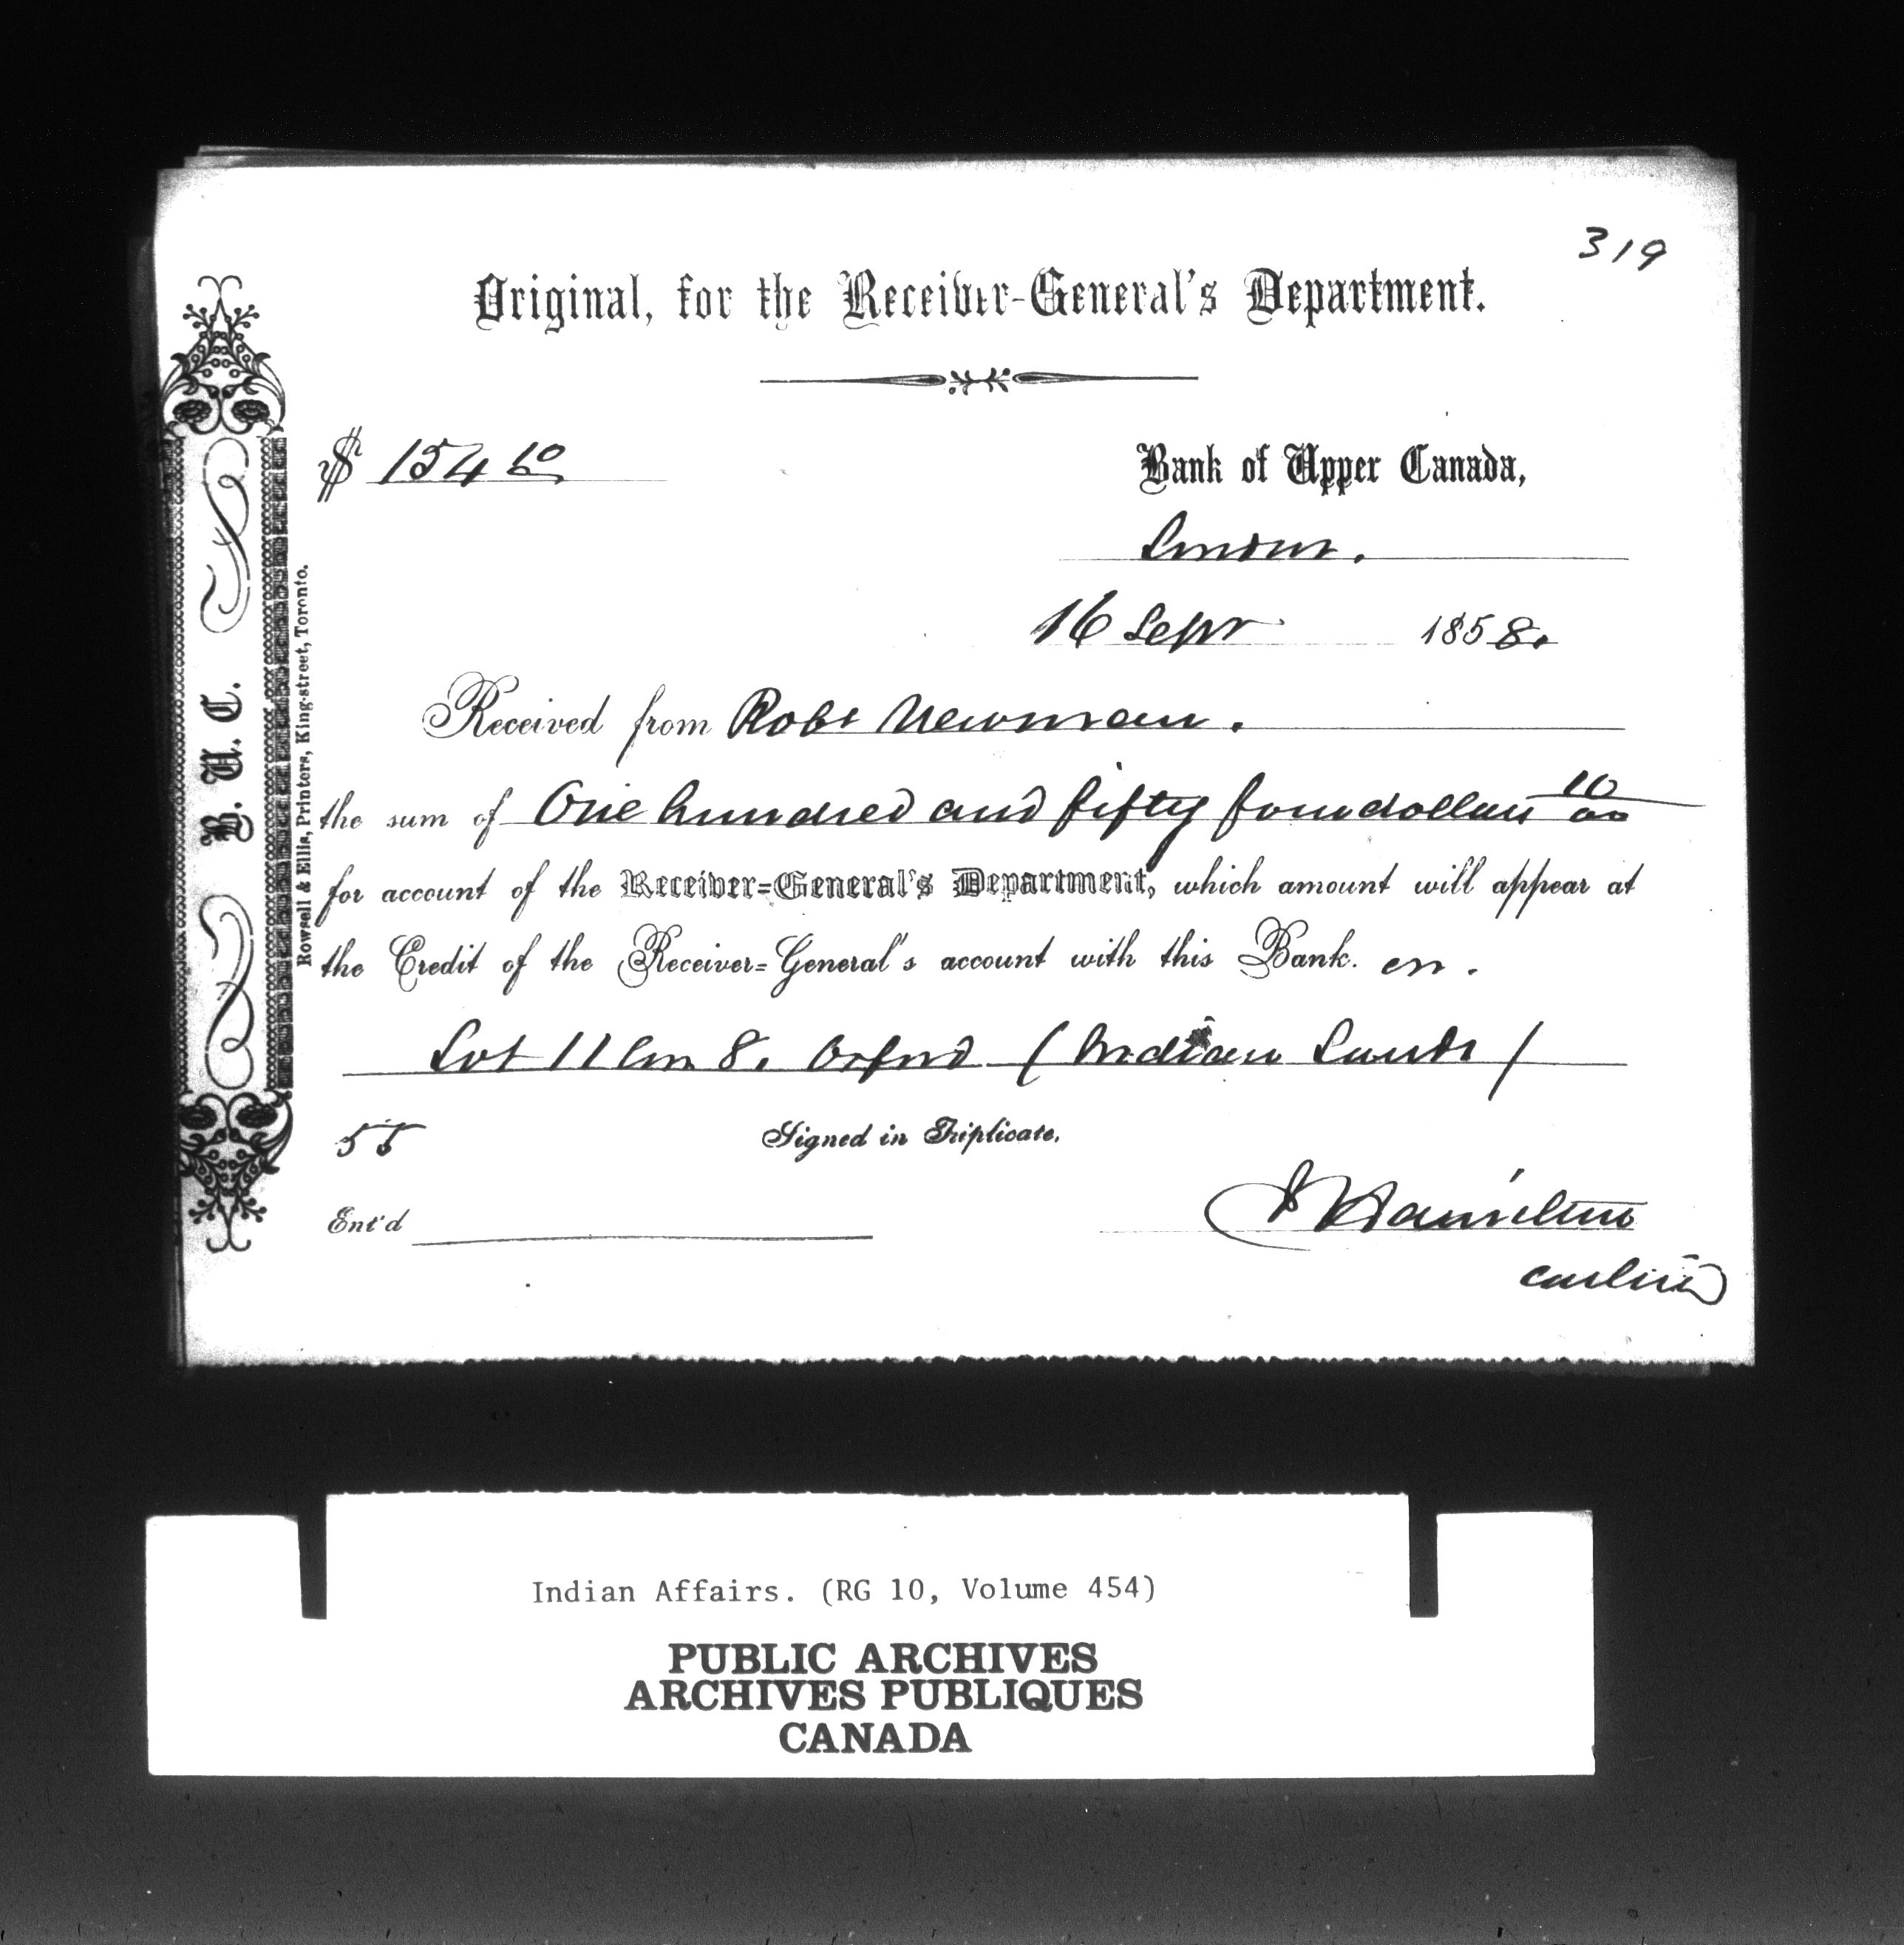 319
Original, for the Receiver-General's Department.
$ 154 10
Bank of Upper Canada,
London.
16 Sepr 1858.
Received from Robt Newman.
the sum of One hundred and fifty four dollars 10/00
for account of the Receiver-General's Department, which amount will appear at
the Credit of the Receiver-General's account with this Bank. on.
Lot 11 Con 8. Orford (Indian Lands)
55
Signed in Triplicate.
Ent'd
Hamilton
B. U. C.
Rowsell & Ellis, Printers, King-street, Toronto.
Indian Affairs. (RG 10, Volume 454)
PUBLIC ARCHIVES
ARCHIVES PUBLIQUES
CANADA